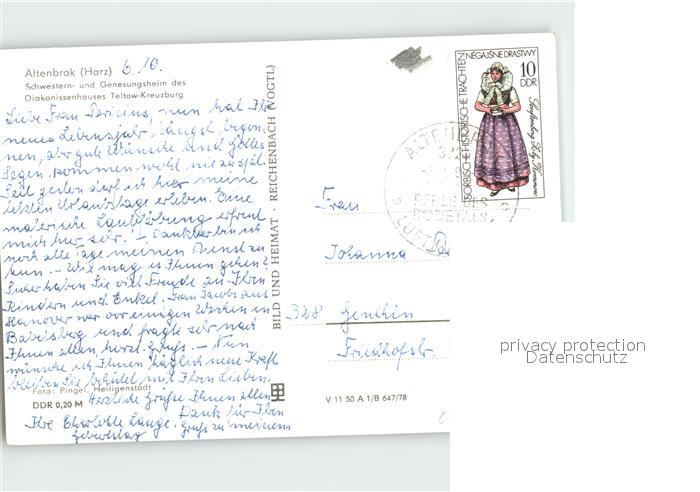 Altenbrak (Harz) 6.10.
Schwestern- und Genesungsheim des
Diakonissenhauses Teltow-Kreuzburg
Liebe Frau Vericius, nun hat Ihr
neues Lebensjahr längst begon-
nen, aber gute Wünsche und Gottes
Segen kommen wohl nie zu spät.
Seit gestern darf ich hier meine
letzten Urlaubstage erleben. Eine
malerische Laubfärbung erfreut
mich hier sehr! – Dankbar bin ich
noch alle Tage meinen Dienst zu
tun. – Wie mag es Ihnen gehen?
Sicher haben Sie viel Freude an Ihren
Kindern und Enkel. Frau Jacobs aus
Hanover war vor einigen Wochen in
Babelsberg und fragte sehr nach
Ihnen allen herzl. grüß. – Nun
wünsche ich Ihnen täglich neue Kraft
bleiben Sie behütet mit Ihren Lieben.
Foto: Pingel, Heiligenstadt
Herzliche Grüße Ihnen allen
DDR 0,20 M
Ihre Charlotte Lange. Dank für Ihren
Gruß zu meinem
Geburtstag
BILD UND HEIMAT · REICHENBACH (VOGTL)
SORBISCHE HISTORISCHE TRACHTEN
NĚGAJŠNE DRASTWY
10
DDR
ALTEN
BODETAL
LUFT
Frau
Johanna
328 Genthin
Friedhofstr.
V 11 50 A 1/B 647/78
privacy protection
Datenschutz